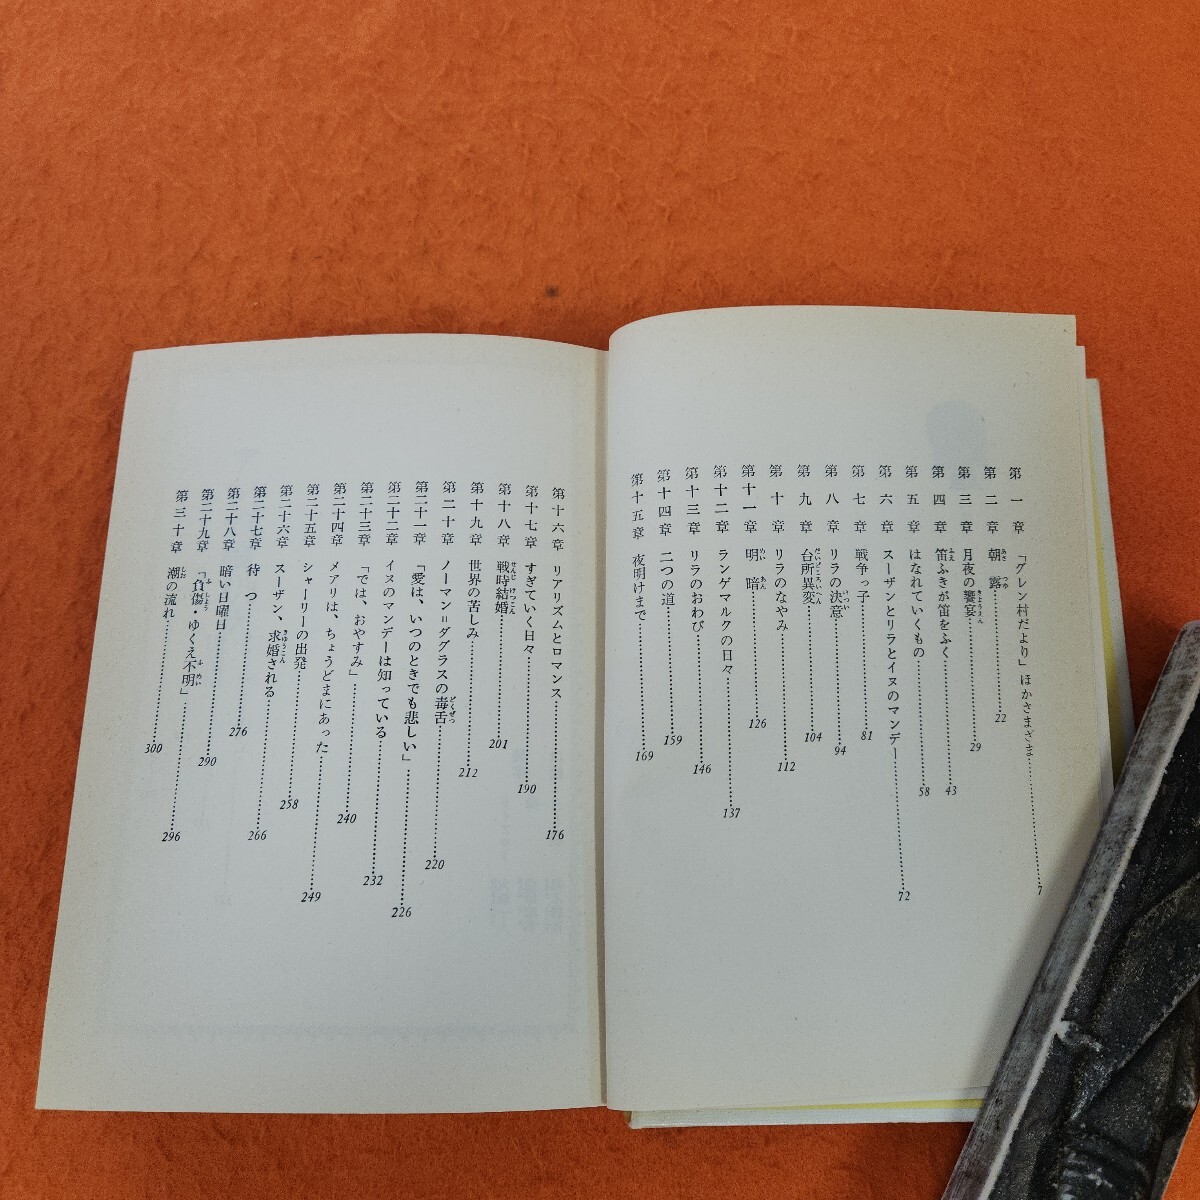 第一章 「グレン村だより」ほかさまざま 7
第二章 朝露 22
第三章 月夜の饗宴 29
第四章 笛ふきが笛をふく 43
第五章 はなれていくもの 58
第六章 スーザンとリラとイヌのマンデー 72
第七章 戦争っ子 81
第八章 リラの決意 94
第九章 台所異変 104
第十章 リラのなやみ 112
第十一章 明暗 126
第十二章 ランゲマルクの日々 137
第十三章 リラのおわび 146
第十四章 二つの道 159
第十五章 夜明けまで 169
第十六章 リアリズムとロマンス 176
第十七章 すぎていく日々 190
第十八章 戦時結婚 201
第十九章 世界の苦しみ 212
第二十章 ノーマン=ダグラスの毒舌 220
第二十一章 「愛は、いつのときでも悲しい」 226
第二十二章 イヌのマンデーは知っている 232
第二十三章 「では、おやすみ」 240
第二十四章 メアリは、ちょうどまにあった 249
第二十五章 シャーリーの出発 258
第二十六章 スーザン、求婚される 266
第二十七章 待つ 276
第二十八章 暗い日曜日 290
第二十九章 「負傷・ゆくえ不明」 296
第三十章 潮の流れ 300